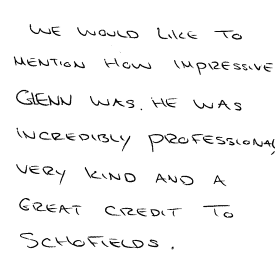 WE WOULD LIKE TO
MENTION HOW IMPRESSIVE
GLENN WAS. HE WAS
INCREDIBLY PROFESSIONAL,
VERY KIND AND A
GREAT CREDIT TO
SCHOFIELDS.